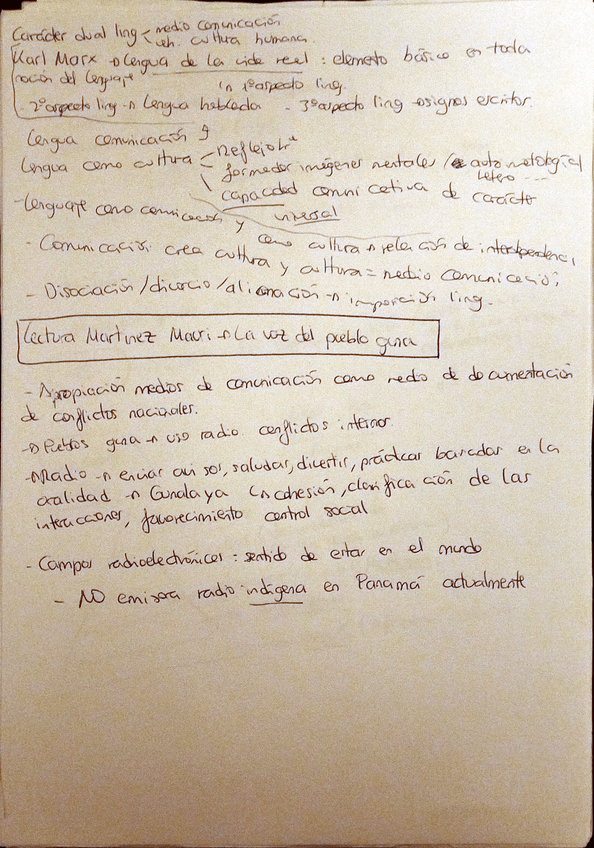 Carácter dual ling < medio comunicación
veh. cultura humana.
Karl Marx → Lengua de la vida real : elemento básico en toda
noción del lenguaje
↳ 1º aspecto ling.
2º aspecto ling → Lengua hablada - 3º aspecto ling → signos escritos.
Lengua comunicación
Lengua como cultura < Reflejo
formador imágenes mentales / auto
hetero ...
capacidad comunicativa de carácter
universal
- Lenguaje como comunicación y
como cultura → relación de interdependencia
- Comunicación crea cultura y cultura = medio comunicación
- Disociación/divorcio/alienación → imposición ling.
Lectura Martínez Mauri → La voz del pueblo guna
- Apropiación medios de comunicación como medio de documentación
de conflictos nacionales.
→ Pueblos guna → uso radio conflictos internos.
→ Radio → enviar avisos, saludar, divertir, prácticas basadas en la
oralidad → Gunalaya ↳ cohesión, clarificación de las
interacciones, favorecimiento control social
- Campos radioelectrónicos : sentido de estar en el mundo
- NO emisora radio indígena en Panamá actualmente